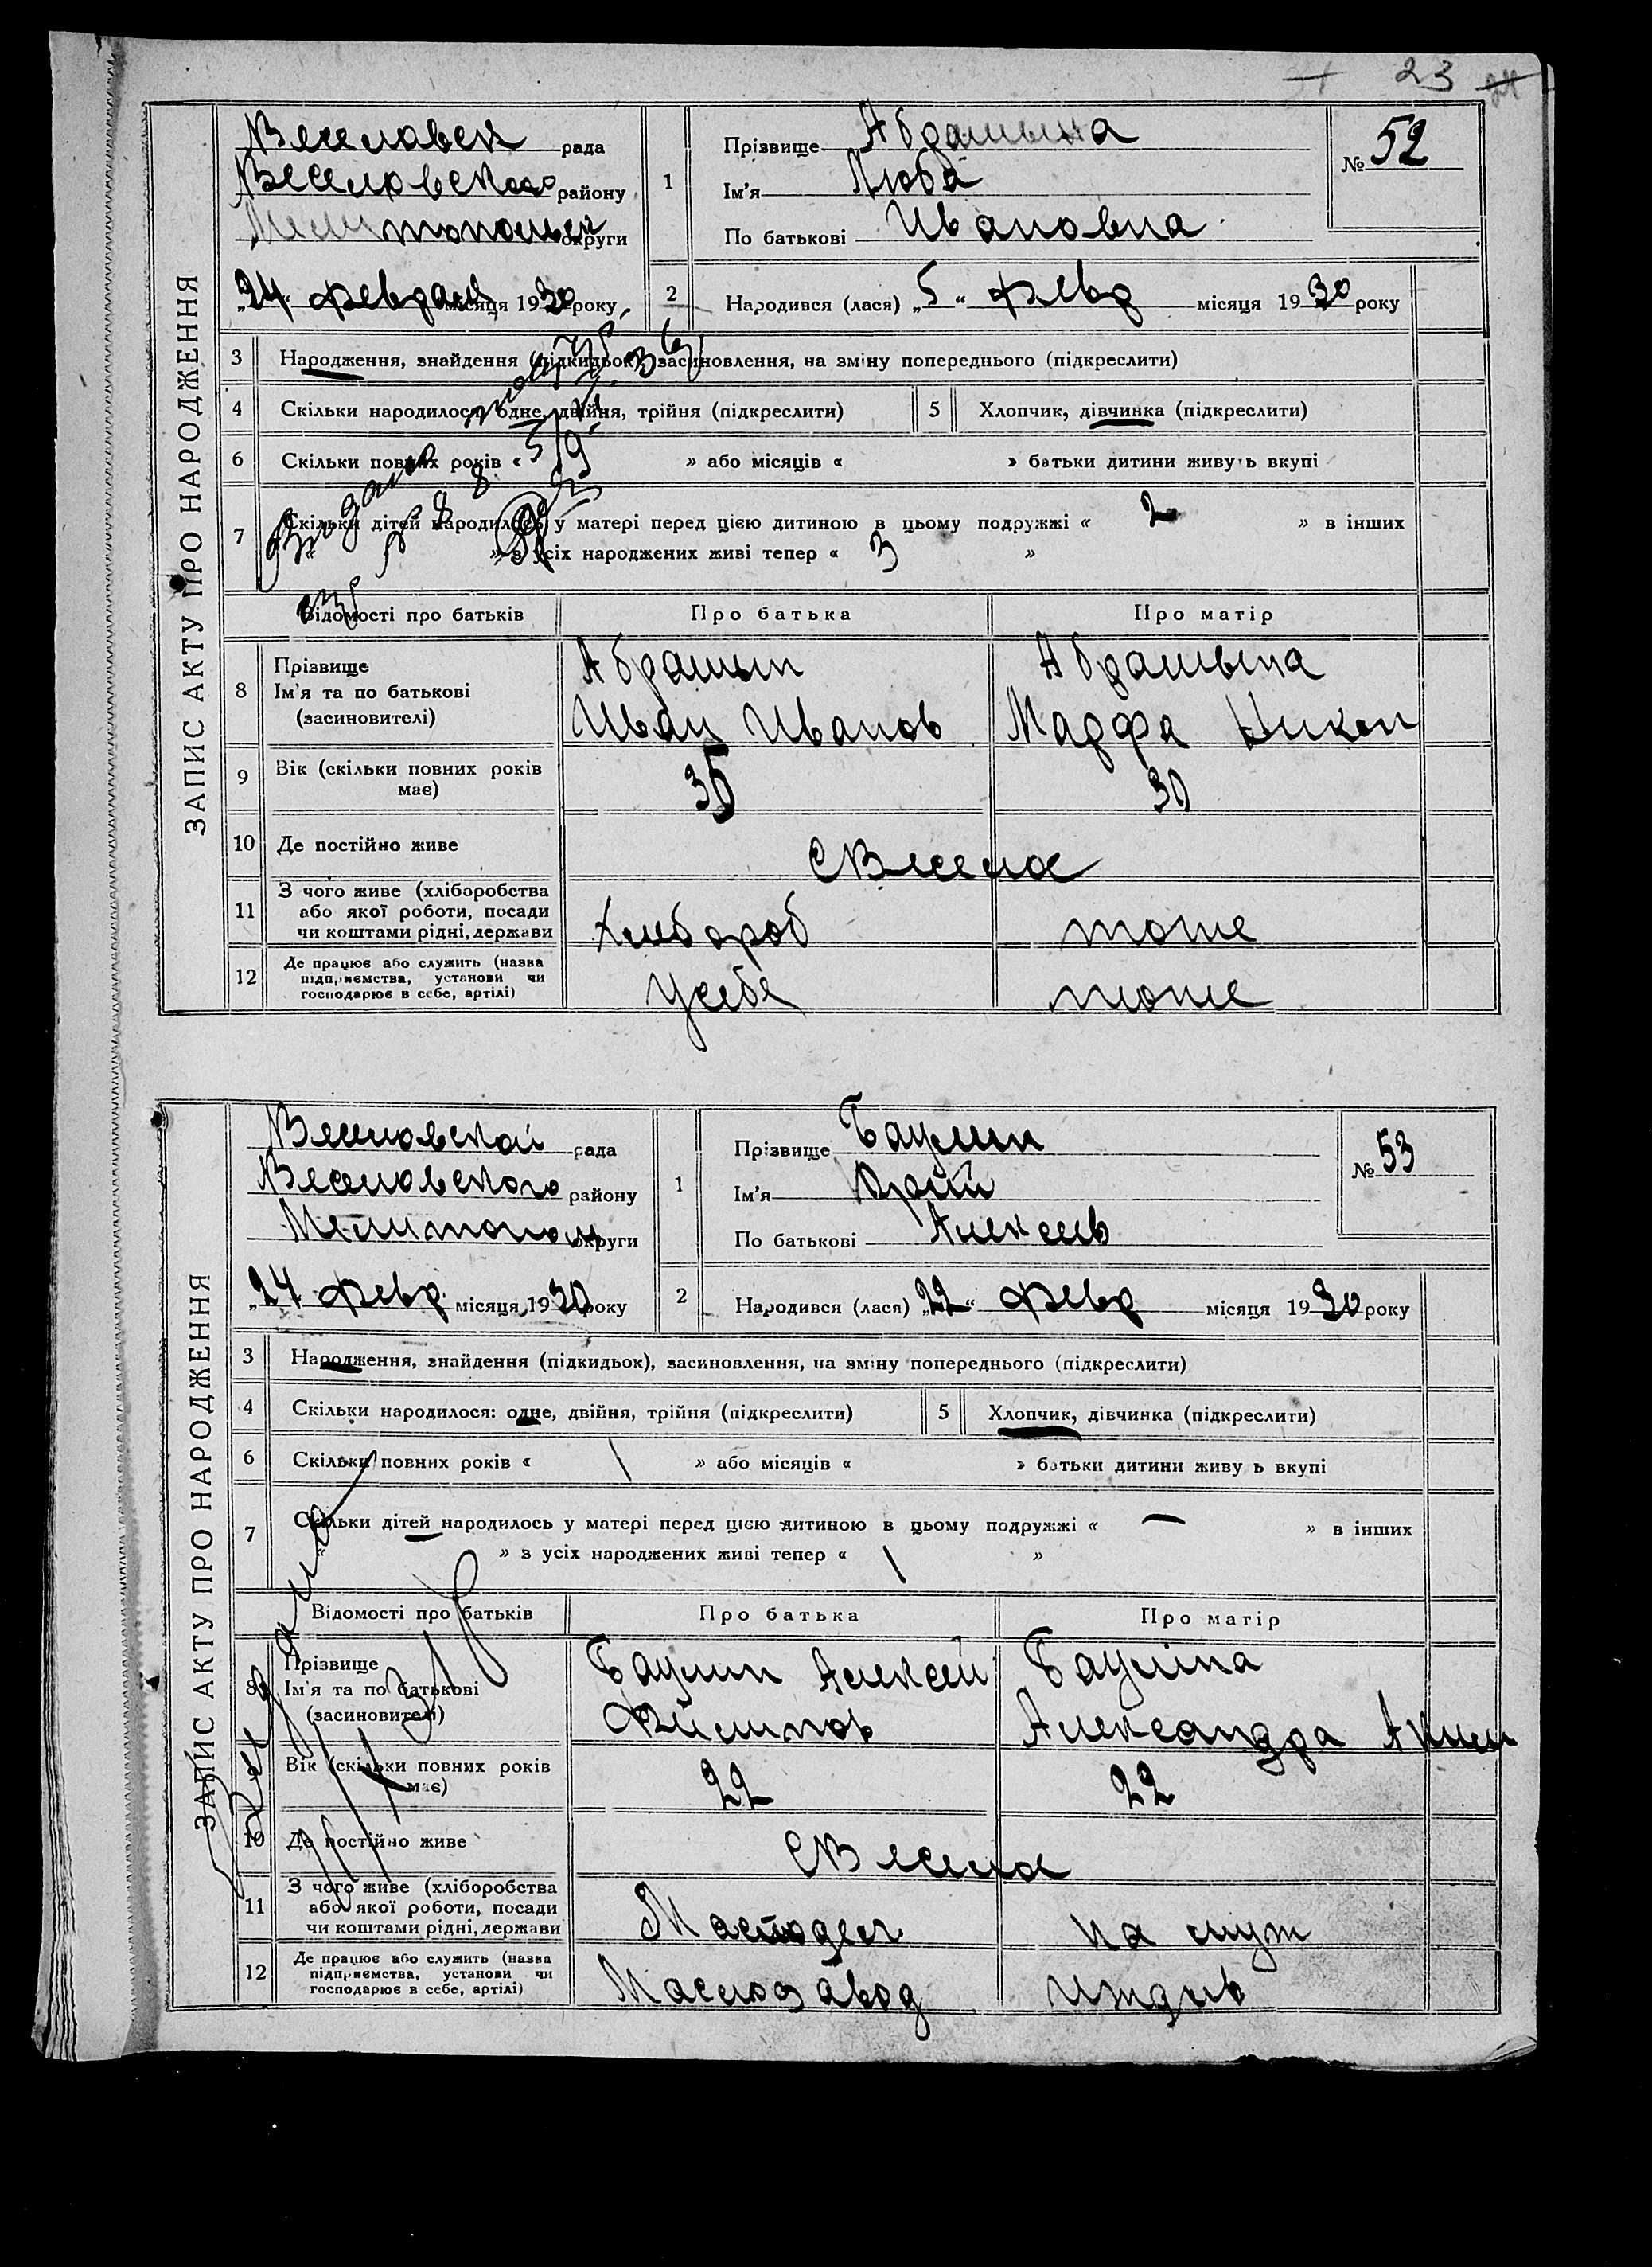 23
ЗАПИС АКТУ ПРО НАРОДЖЕННЯ
Веселовск рада
Веселовского району
Мелитопольск округи
„24“ февраля місяця 1930 року
1
Прізвище Абрамына
Ім'я Люба
По батькові Ивановна
№ 52
2
Народився (лася) „5“ февр місяця 1930 року
3 Народження, знайдення (підкидьок), засиновлення, на зміну попереднього (підкреслити)
4 Скільки народилося: одне, двійня, трійня (підкреслити)
5 Хлопчик, дівчинка (підкреслити)
6 Скільки повних років « » або місяців « » батьки дитини живуть вкупі
7 Скільки дітей народилось у матері перед цією дитиною в цьому подружжі « 2 » в інших
« » з усіх народжених живі тепер « 3 »
Відомості про батьків Про батька Про матір
8 Прізвище
Ім'я та по батькові
(засиновителі)
Абрамын
Иван Иванов
Абрамына
Марфа Никон
9 Вік (скільки повних років має) 35 30
10 Де постійно живе С Весела
11 З чого живе (хліборобства
або якої роботи, посади
чи коштами рідні, держави
Хлебороб тоже
12 Де працює або служить (назва
підприємства, установи чи
господарює в себе, артілі)
У себе тоже
ЗАПИС АКТУ ПРО НАРОДЖЕННЯ
Веселовской рада
Веселовского району
Мелитопол округи
„24 февр. місяця 1930 року
1
Прізвище Баулин
Ім'я Юрий
По батькові Алексеев
№ 53
2
Народився (лася) „22“ февр місяця 1930 року
3 Народження, знайдення (підкидьок), засиновлення, на зміну попереднього (підкреслити)
4 Скільки народилося: одне, двійня, трійня (підкреслити)
5 Хлопчик, дівчинка (підкреслити)
6 Скільки повних років « 1 » або місяців « » батьки дитини живуть вкупі
7 Скільки дітей народилось у матері перед цією дитиною в цьому подружжі « — » в інших
« » з усіх народжених живі тепер « 1 »
Відомості про батьків Про батька Про матір
8 Прізвище
Ім'я та по батькові
(засиновителі)
Баулин Алексей
Филипов
Бауліна
Александра Аким
9 Вік (скільки повних років має) 22 22
10 Де постійно живе С Весела
11 З чого живе (хліборобства
або якої роботи, посади
чи коштами рідні, держави
на
12 Де працює або служить (назва
підприємства, установи чи
господарює в себе, артілі)
Маслозавод иждив